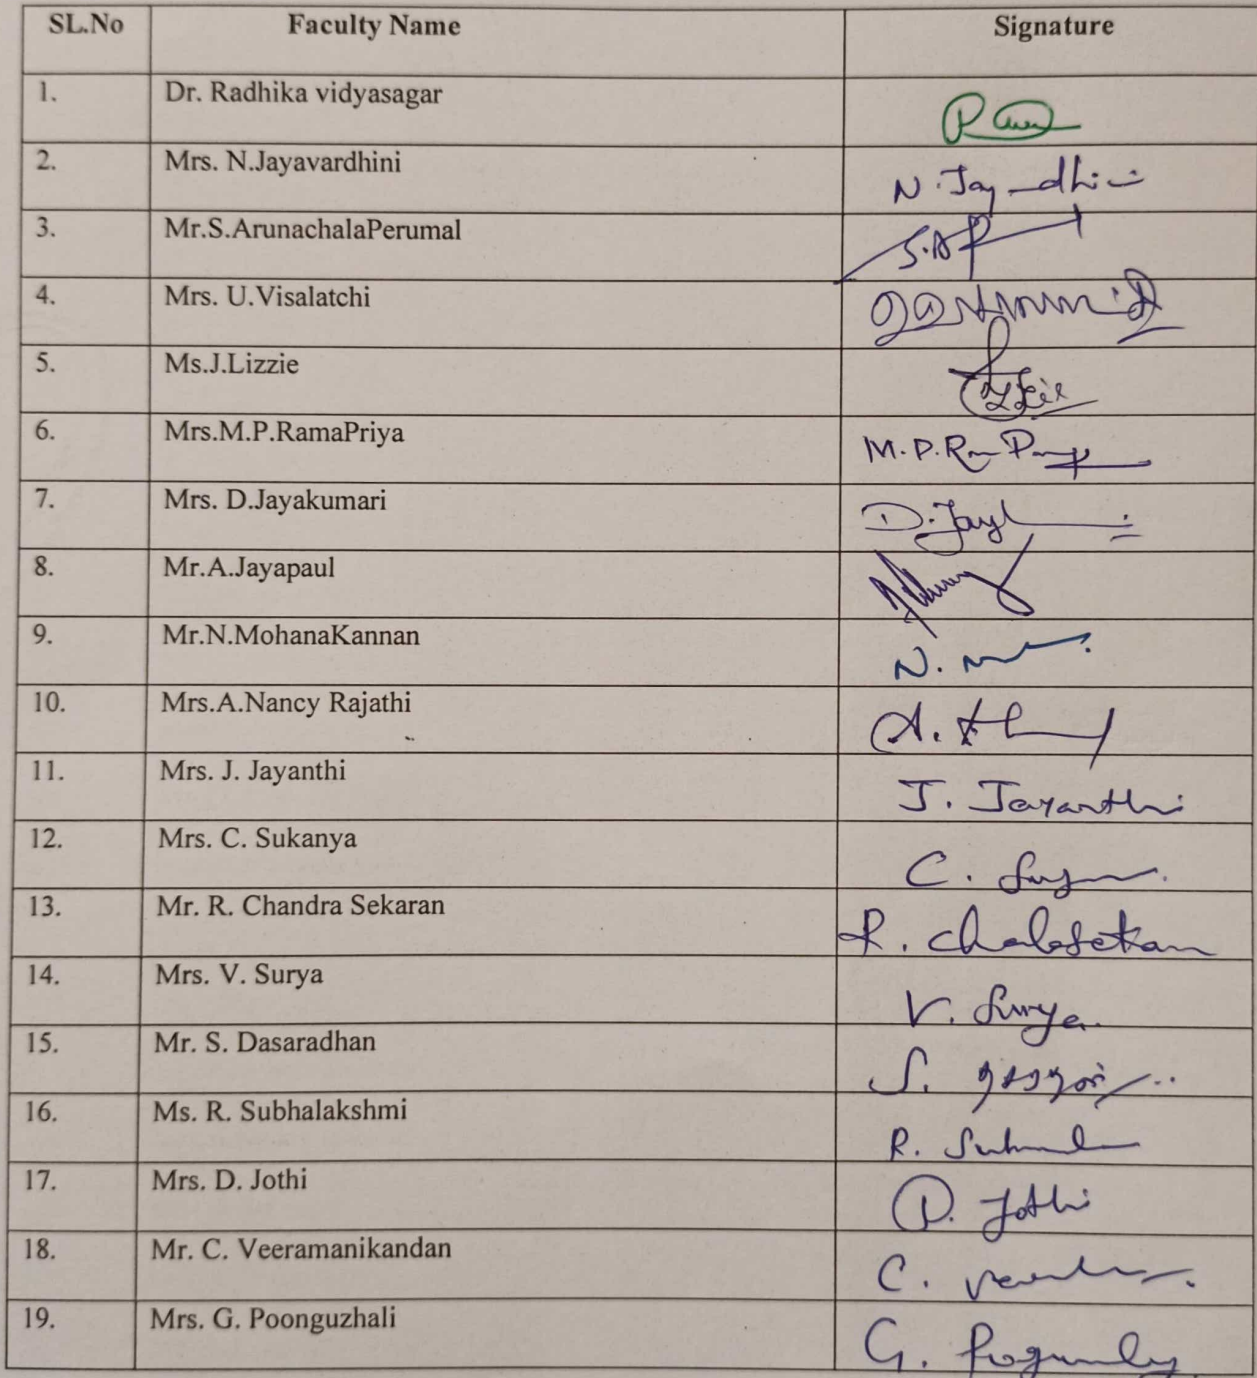 SL.No Faculty Name Signature
1. Dr. Radhika vidyasagar
2. Mrs. N.Jayavardhini
3. Mr.S.ArunachalaPerumal S.AP
4. Mrs. U.Visalatchi
5. Ms.J.Lizzie
6. Mrs.M.P.RamaPriya M.P.
7. Mrs. D.Jayakumari D.
8. Mr.A.Jayapaul
9. Mr.N.MohanaKannan N.
10. Mrs.A.Nancy Rajathi A.
11. Mrs. J. Jayanthi J. Jayanthi
12. Mrs. C. Sukanya C.
13. Mr. R. Chandra Sekaran R.
14. Mrs. V. Surya V. Surya
15. Mr. S. Dasaradhan S.
16. Ms. R. Subhalakshmi R.
17. Mrs. D. Jothi D. Jothi
18. Mr. C. Veeramanikandan C.
19. Mrs. G. Poonguzhali G.